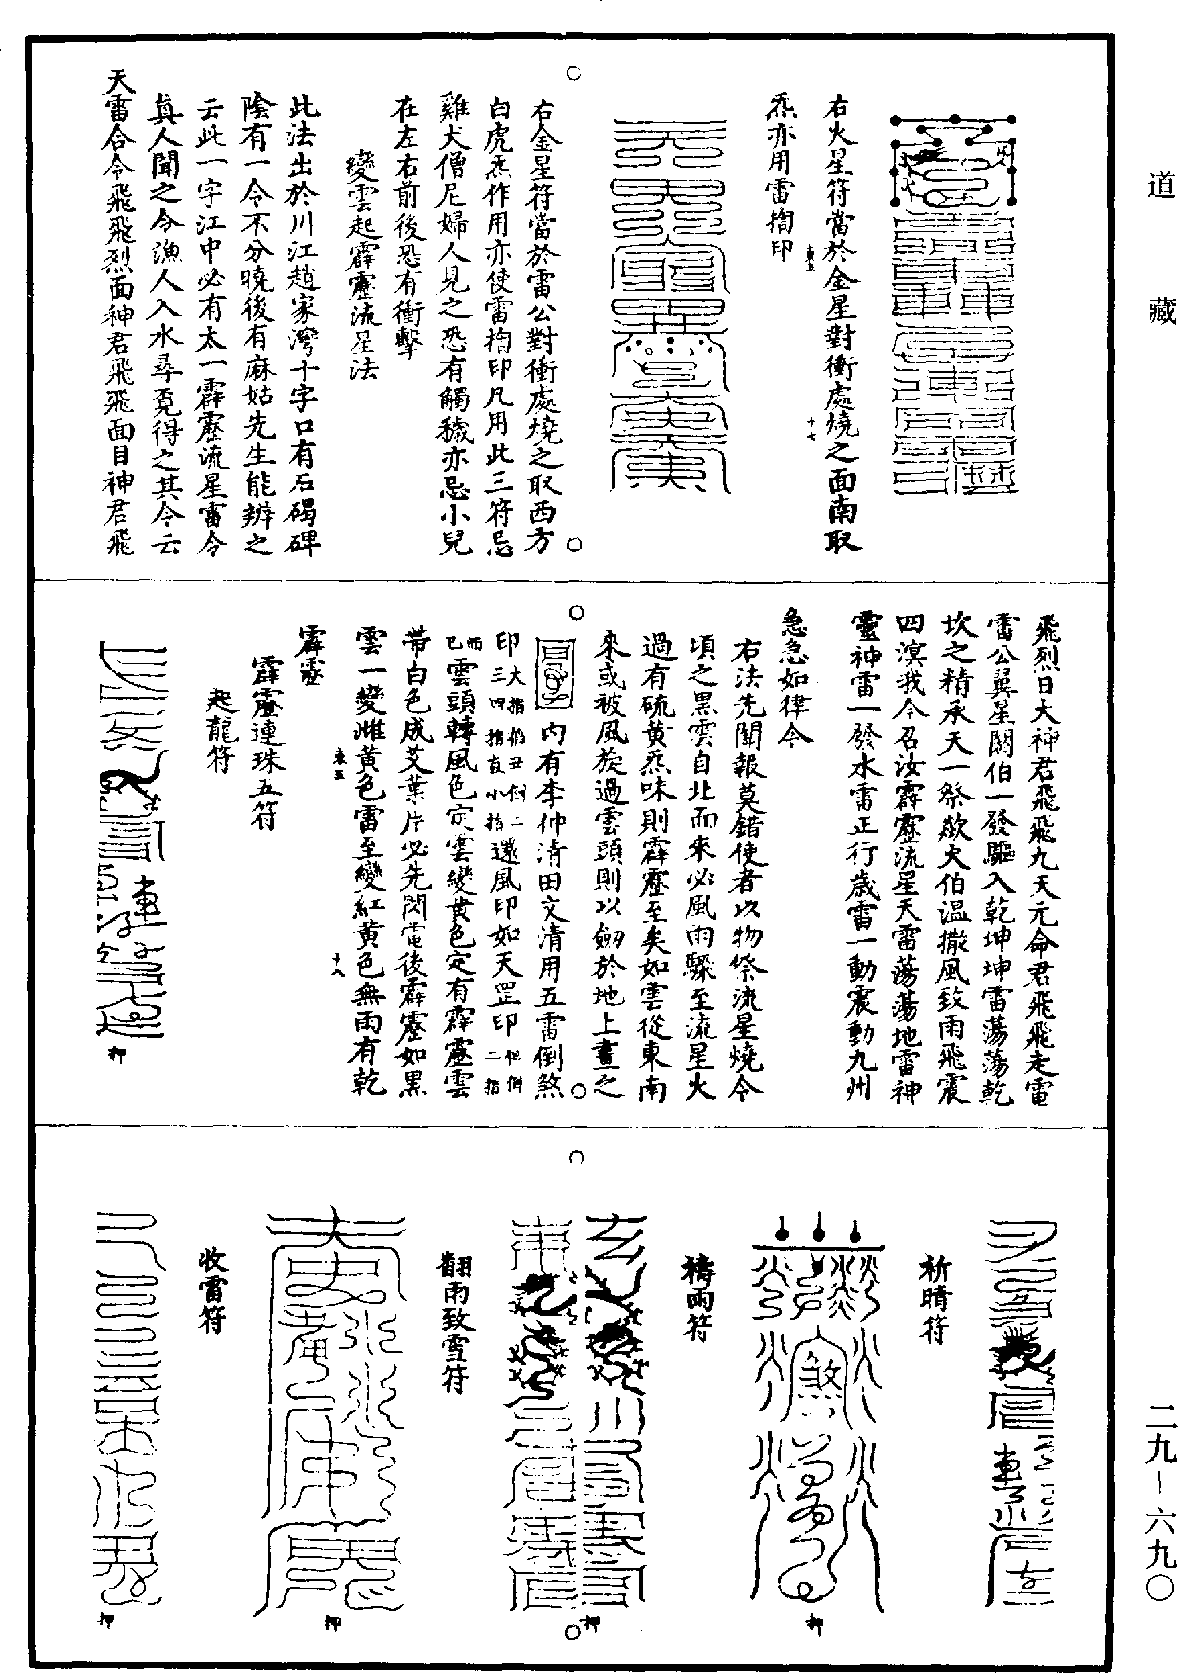 道藏
右火星符當於金星對衝處燒之面南取
炁亦用雷搯印
右金星符當於雷公對衝處燒之取西方
白虎炁作用亦使雷搯印凡用此三符忌
雞犬僧尼婦人見之恐有觸穢亦忌小兒
在左右前後恐有衝擊
變雲起霹靂流星法
此法出於川江趙家灣十字口有石碣碑
陰有一令不分曉後有麻姑先生能辨之
云此一字江中必有太一霹靂流星雷令
真人聞之令漁人入水尋覓得之其令云
天雷合令飛飛烈面神君飛飛面目神君飛
飛烈日大神君飛飛九天元命君飛飛走電
雷公翼星閼伯一發驅入乾坤坤雷蕩蕩乾
坎之精承天一祭歘火伯溫撒風致雨飛震
四溟我今召汝霹靂流星天雷蕩蕩地雷神
靈神雷一發水雷正行歲雷一動震動九州
急急如律令
右法先聞報莫錯使者以物祭流星燒令
頃之黑雲自北而來必風雨驟至流星火
過有硫黃炁味則霹靂至矣如雲從東南
來或被風旋過雲頭則以劒於地上畫之
內有李仲清田文清用五雷倒煞
印大指仍丑側二三四指直小指還風印如天罡印但倂二指
而已雲頭轉風色定雲變黃色定有霹靂雲
帶白色成艾葉片必先閃電後霹靂如黑
雲一變雌黃色雷至變紅黃色無雨有乾
霹靂
霹靂連珠五符
起龍符
押
祈晴符
押
禱雨符
押
翻雨致雪符
押
收雷符
押
十七
十八
二九-六九〇